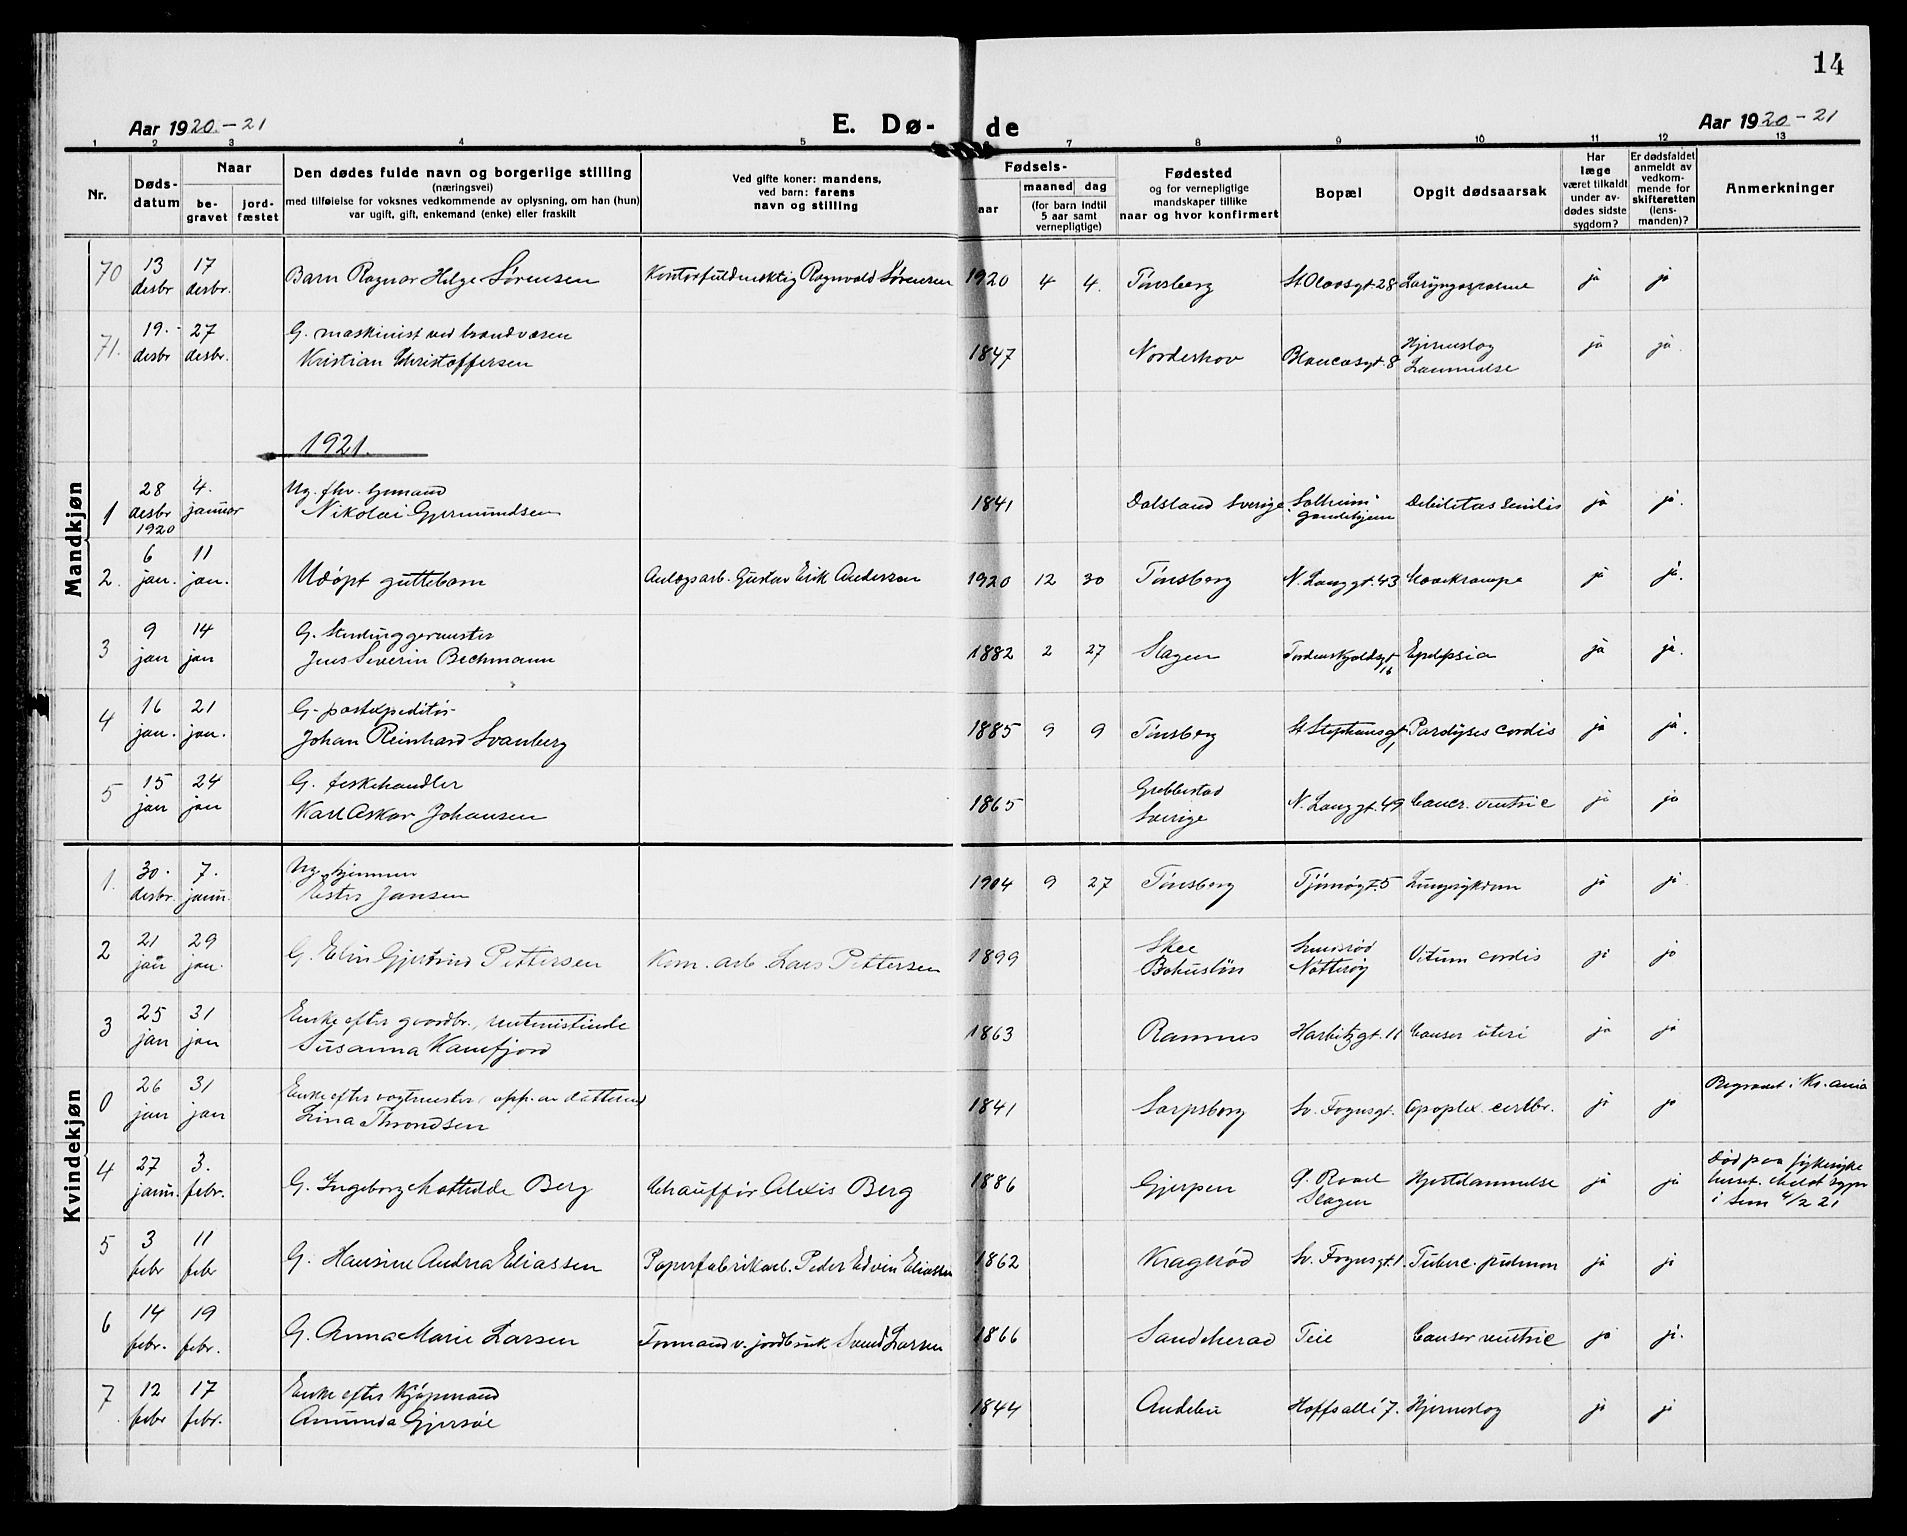 14
Aar 1920-21
E. Dø- de
Aar 1920-21
1 2 3 4 5 7 8 9 10 11 12 13
Nr.
Døds-
datum
Naar
be-
gravet
jord-
fæstet
Den dødes fulde navn og borgerlige stilling
(næringsvei)
med tilføielse for voksnes vedkommende av oplysning, om han (hun)
var ugift, gift, enkemand (enke) eller fraskilt
Ved gifte koner: mandens,
ved barn: farens
navn og stilling
Fødsels-
aar
maaned dag
(for barn indtil
5 aar samt
vernepligtige)
Fødested
og for vernepligtige
mandskaper tillike
naar og hvor konfirmert
Bopæl
Opgit dødsaarsak
Har
læge
været tilkaldt
under av-
dødes sidste
sygdom?
Er dødsfaldet
anmeldt av
vedkom-
mende for
skifteretten
(lens-
manden)?
Anmerkninger
Mandkjøn
70 13 desbr 17 desbr. Barn Ragnar Helge Sørensen Kontorfuldmæktig Ragnvald Sørensen 1920 4 4. Tønsberg St. Olavsgt. 28 Laryngospasme ja ja
71. 19. desbr 27 desbr. G. maskinist ved brandvæsen
Kristian Christoffersen 1847 Norderhov Blancasgt. 8 Hjerneslag
Lammelse ja ja.
1921.
1 28 desbr 1920 4. januar Ug. fhv. sjømand
Nikolai Gjermundsen 1841 Dalsland Sverige Solheim
gamlehjem Debilitas senilis ja ja.
2. 6 jan. 11 jan. Udøpt guttebarn Anlægsarb. Gustav Erik Anderson 1920 12 30 Tønsberg N. Langgt. 43 Mavekrampe ja ja.
3 9 jan 14 jan G.
Jens Severin Bechmann 1882 2 27 Slagen Tordenskjoldsgt
16 Epelpsia ja ja.
4 16 jan. 21 jan. G. postexpeditør
Johan Reinhard Svanberg 1885 9 9 Tønsberg St Stephansgt.
1 Paralyses cordis ja ja.
5 15 jan 24 jan G. feskehandler
Karl Oskar Johansen 1865 Grebbestad
Sverige N. Langgt. 49 Cancr. ventric ja ja
Kvindekjøn
1. 30. desbr. 7. janu. Ug. hjemme
Ester Jansen 1904 9 27 Tønsberg Tjømøgt. 5 Lungesykdom ja ja.
2 21 jan 29 jan. G. Elin Gjertrud Pettersen Kom. arb. Lars Pettersen 1899 Skee
Bohuslän Smidsrød
Nøtterøy Vitum cordis ja ja
3 25 jan 31 jan Enke efter gaardbr., rentenistinde
Susanna Kamfjord 1863 Ramnes Harbitzgt. 11 Canser uteri ja ja
0 26 jan 31 jan Enke efter vogtmester, opp. av datteren
Lina Throndsen 1841 Sarpsborg Sv. Foynsgt. Apoplex. cerebr. ja ja Begravet i Kr.ania
4 27 janu. 3. febr. G. Ingeborg Mathilde Berg Chauffør Alexis Berg 1886 Gjerpen Ø. Ravei
Slagen Hjertelammelse ja ja Død paa fylkesyke
huset. Meldt sogn
i Sem 4/2 21
5 3 febr 11 febr G. Hansine Andrea Eliassen Papirfabrikarb. Peder Edvin Eliassen 1862 Kragerød Sv. Foynsgt. 1. Tuberc. pulmon ja ja
6 14 febr. 19 febr. G. Anna Marie Larsen Formand v. jordbruk Svend Larsen 1866 Sandeherad Teie Canser ventric ja ja.
7 12 febr 17 febr. Enke efter kjøpmand
Amunda Gjersøe 1844 Andebu Hoffsallé 7. Hjerneslag ja ja